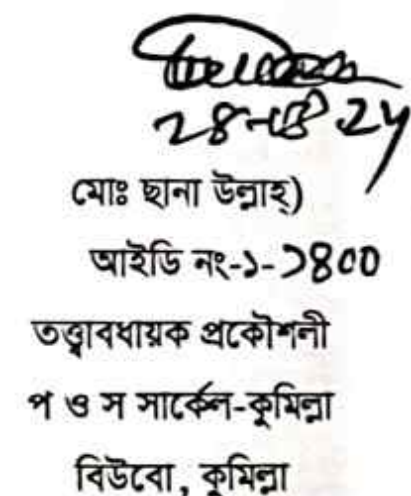 মোঃ ছানা উল্লাহ)
আইডি নং-১-১৪০০
তত্ত্বাবধায়ক প্রকৌশলী
প ও স সার্কেল-কুমিল্লা
বিউবো, কুমিল্লা